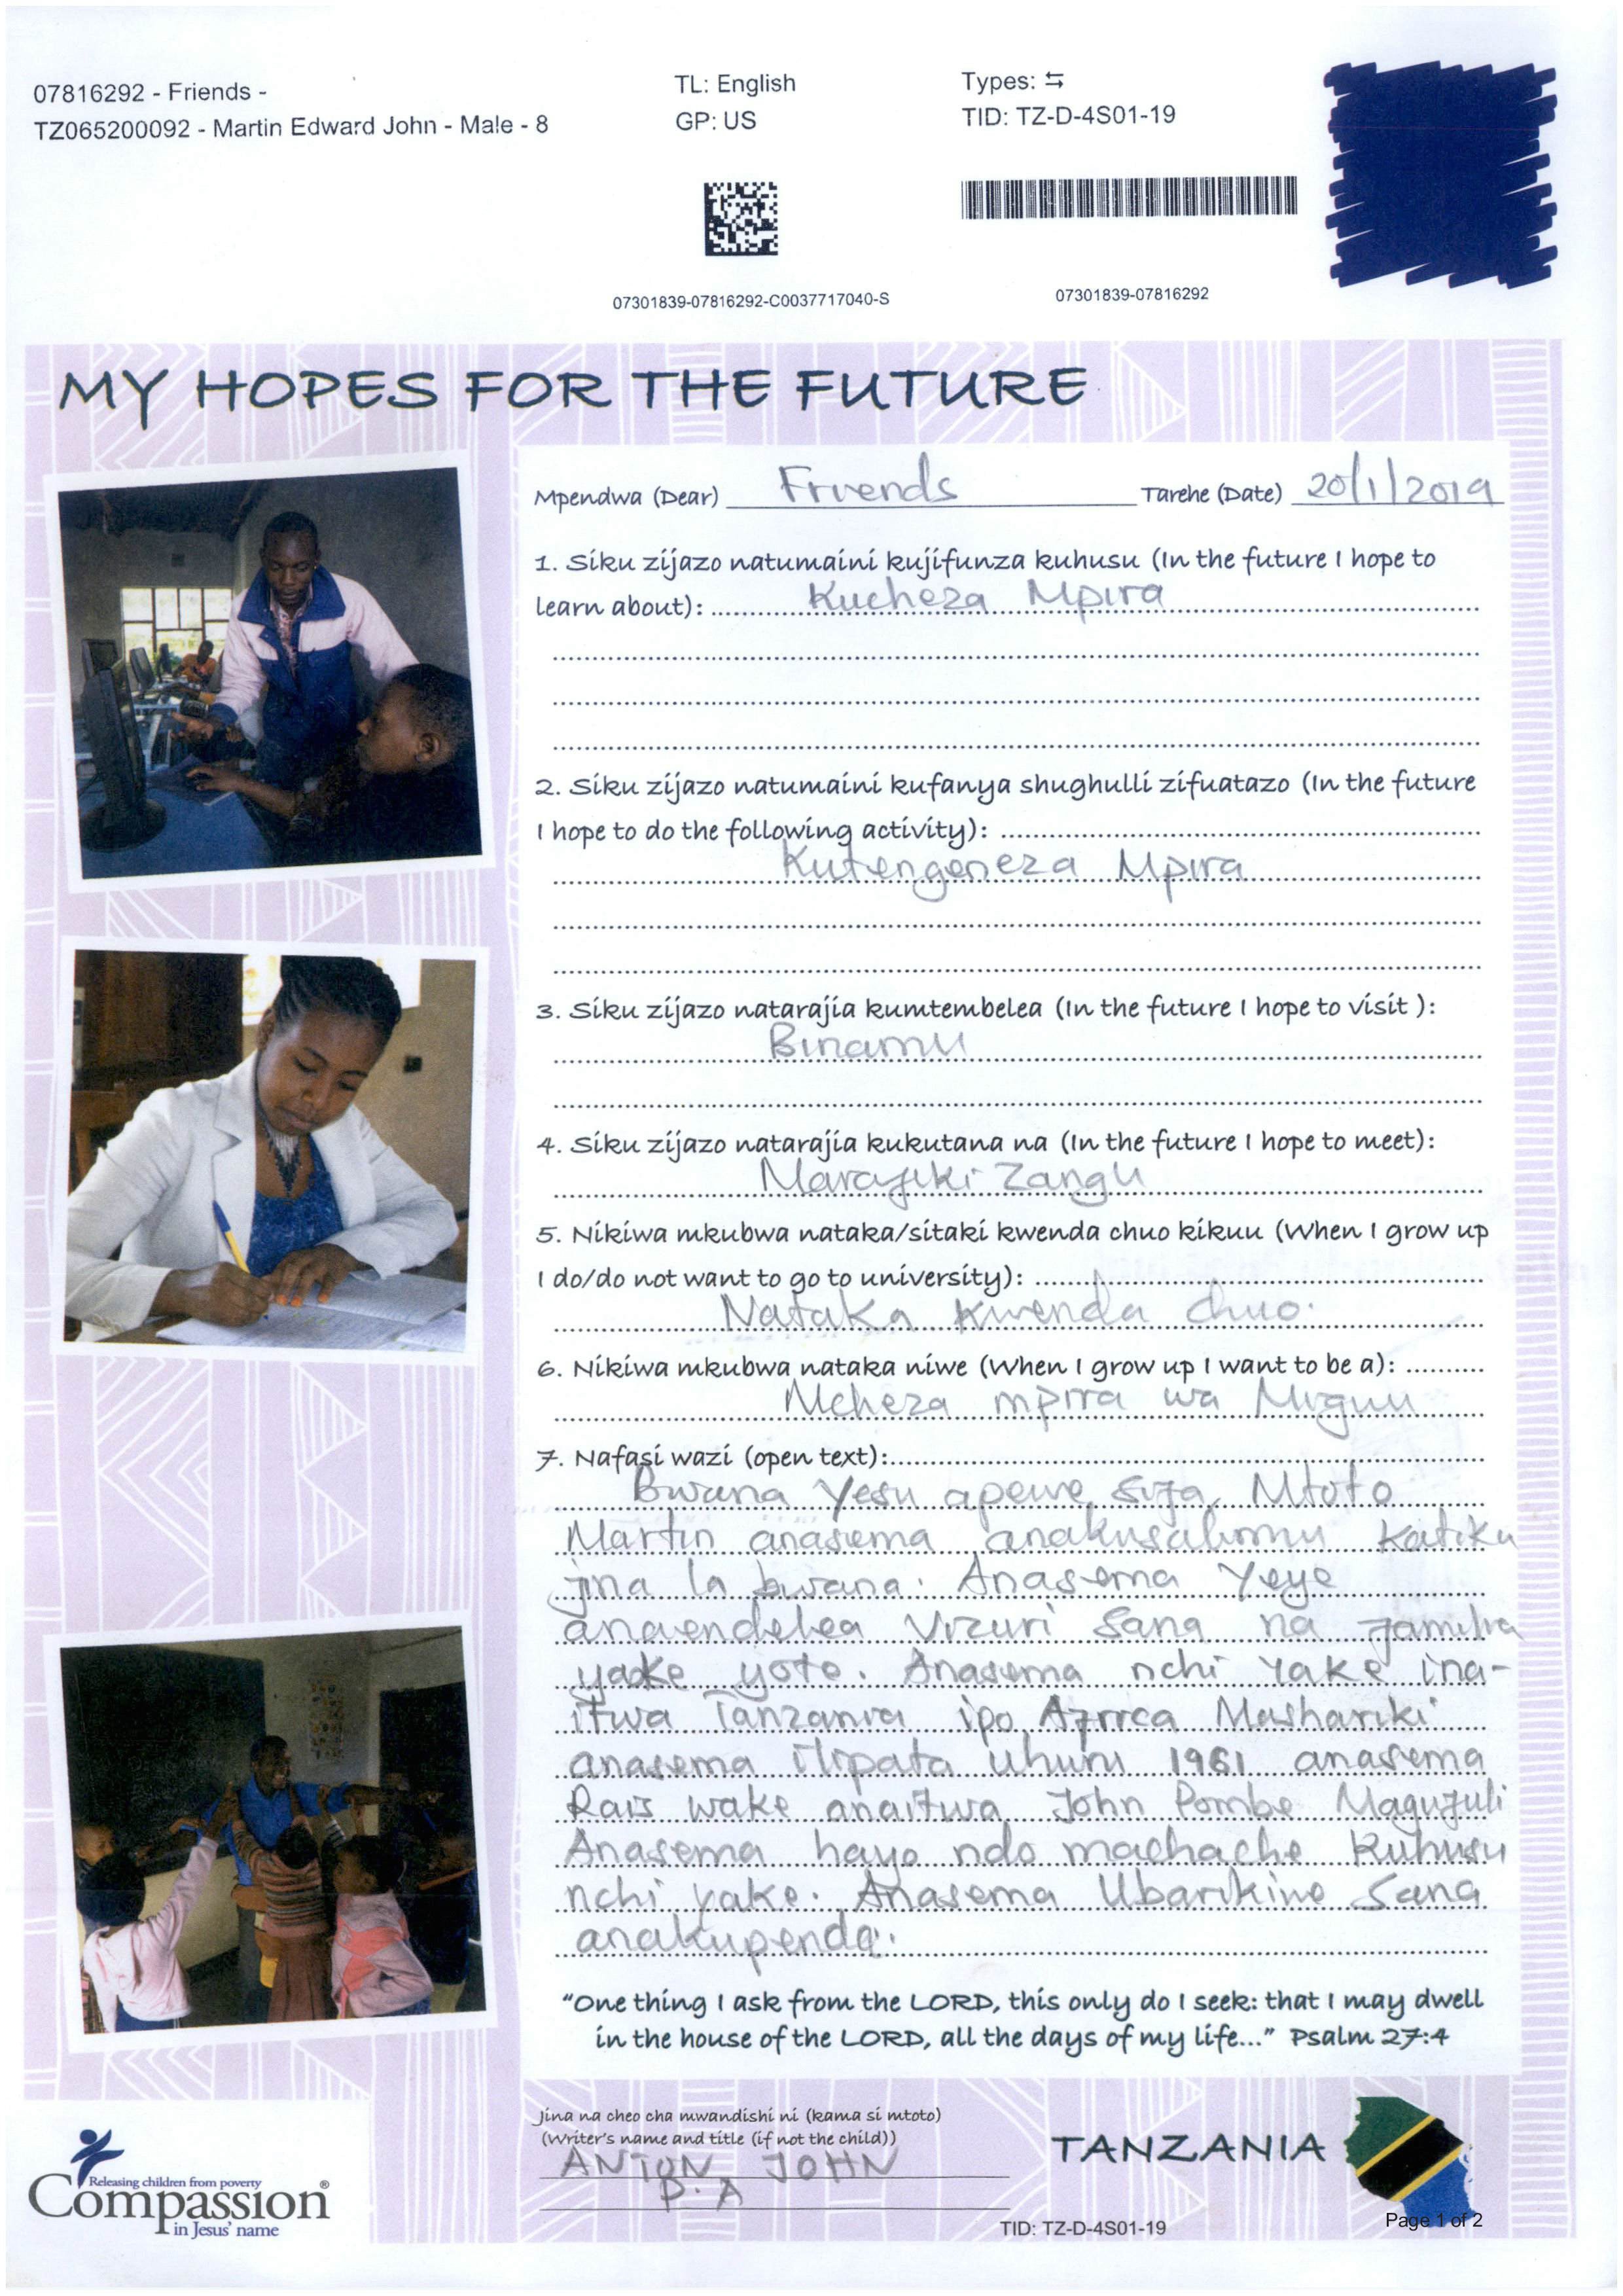 07816292 - Friends -
TZ065200092 - Martin Edward John - Male - 8
TL: English
GP: US
Types: ⇆
TID: TZ-D-4S01-19
07301839-07816292-C0037717040-S
07301839-07816292
MY HOPES FOR THE FUTURE
Mpendwa (Dear) Friends Tarehe (Date) 20/1/2019
1. Siku zijazo natumaini kujifunza kuhusu (In the future I hope to
learn about): Kucheza Mpira
2. Siku zijazo natumaini kufanya shughulli zifuatazo (In the future
I hope to do the following activity):
Kutengeneza Mpira
3. Siku zijazo natarajia kumtembelea (In the future I hope to visit ):
Binamu
4. Siku zijazo natarajia kukutana na (In the future I hope to meet):
Marafiki Zangu
5. Nikiwa mkubwa nataka/sitaki kwenda chuo kikuu (When I grow up
I do/do not want to go to university):
Nataka kwenda chuo.
6. Nikiwa mkubwa nataka niwe (When I grow up I want to be a):
Mcheza mpira wa Miguu
7. Nafasi wazi (open text):
Bwana Yesu apewe sifa, Mtoto
Martin anasema anakusalimu katika
jina la bwana. Anasema Yeye
anaendelea Vizuri Sana na familia
yake yote. Anasema nchi Yake ina-
itwa Tanzania ipo Africa Mashariki
anasema ilipata Uhuru 1961 anasema
Rais wake anaitwa John Pombe Magufuli
Anasema hayo ndo machache Kuhusu
nchi yake. Anasema Ubarikiwe Sana
anakupenda.
"One thing I ask from the LORD, this only do I seek: that I may dwell
in the house of the LORD, all the days of my life..." Psalm 27:4
Jina na cheo cha mwandishi ni (kama si mtoto)
(Writer's name and title (if not the child))
ANTON JOHN
P.A
TANZANIA
Releasing children from poverty
Compassion®
in Jesus' name
TID: TZ-D-4S01-19
Page 1 of 2